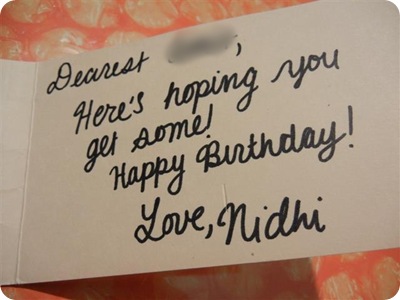 Dearest      ,
Here's hoping you
get some!
Happy Birthday!
Love, Nidhi